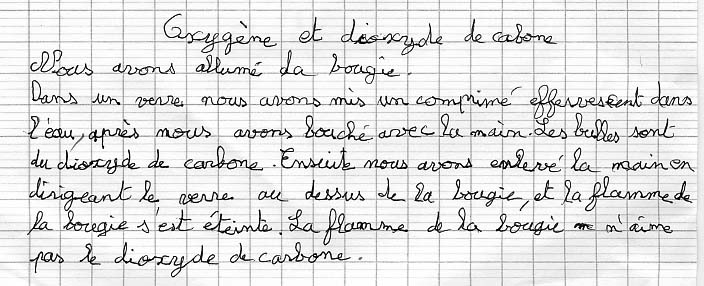 Oxygène et dioxyde de cabone
Nous avons allumé la bougie.
Dans un verre nous avons mis un comprimé effervescent dans
l'éau, après nous avons bouché avec la main. Les bulles sont
du dioxyde de carbone. Ensuite nous avons enlevé la main en
dirigeant le verre au dessus de la bougie, et la flamme de
la bougie s'est éteinte. La flamme de la bougie n'aime
pas le dioxyde de carbone.